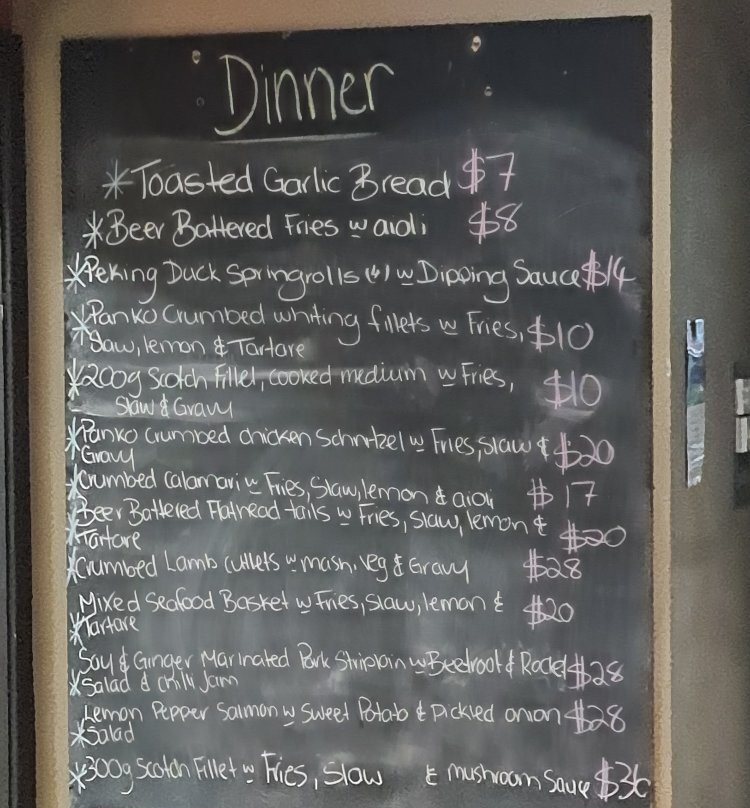 Dinner
*Toasted Garlic Bread $7
*Beer Battered Fries w aioli $8
*Peking Duck Springrolls (4) w Dipping Sauce $14
*Panko Crumbed whiting fillets w Fries, $10
Slaw, lemon & Tartare
*200g Scotch Fillet, cooked medium w Fries, $10
Slaw & Gravy
*Panko Crumbed chicken Schnitzel w Fries, Slaw & $20
Gravy
*Crumbed Calamari w Fries, Slaw, lemon & aioli $17
Beer Battered Flathead tails w Fries, slaw, lemon & $20
*Tartare
*Crumbed Lamb cutlets w mash, veg & Gravy $28
Mixed Seafood Basket w Fries, slaw, lemon & $20
*Tartare
Soy & Ginger Marinated Pork Striploin w Beetroot & Rocket $28
*Salad & chilli Jam
Lemon Pepper Salmon w Sweet Potato & Pickled onion $28
*Salad
*300g Scotch Fillet w Fries, Slaw & mushroom Sauce $36